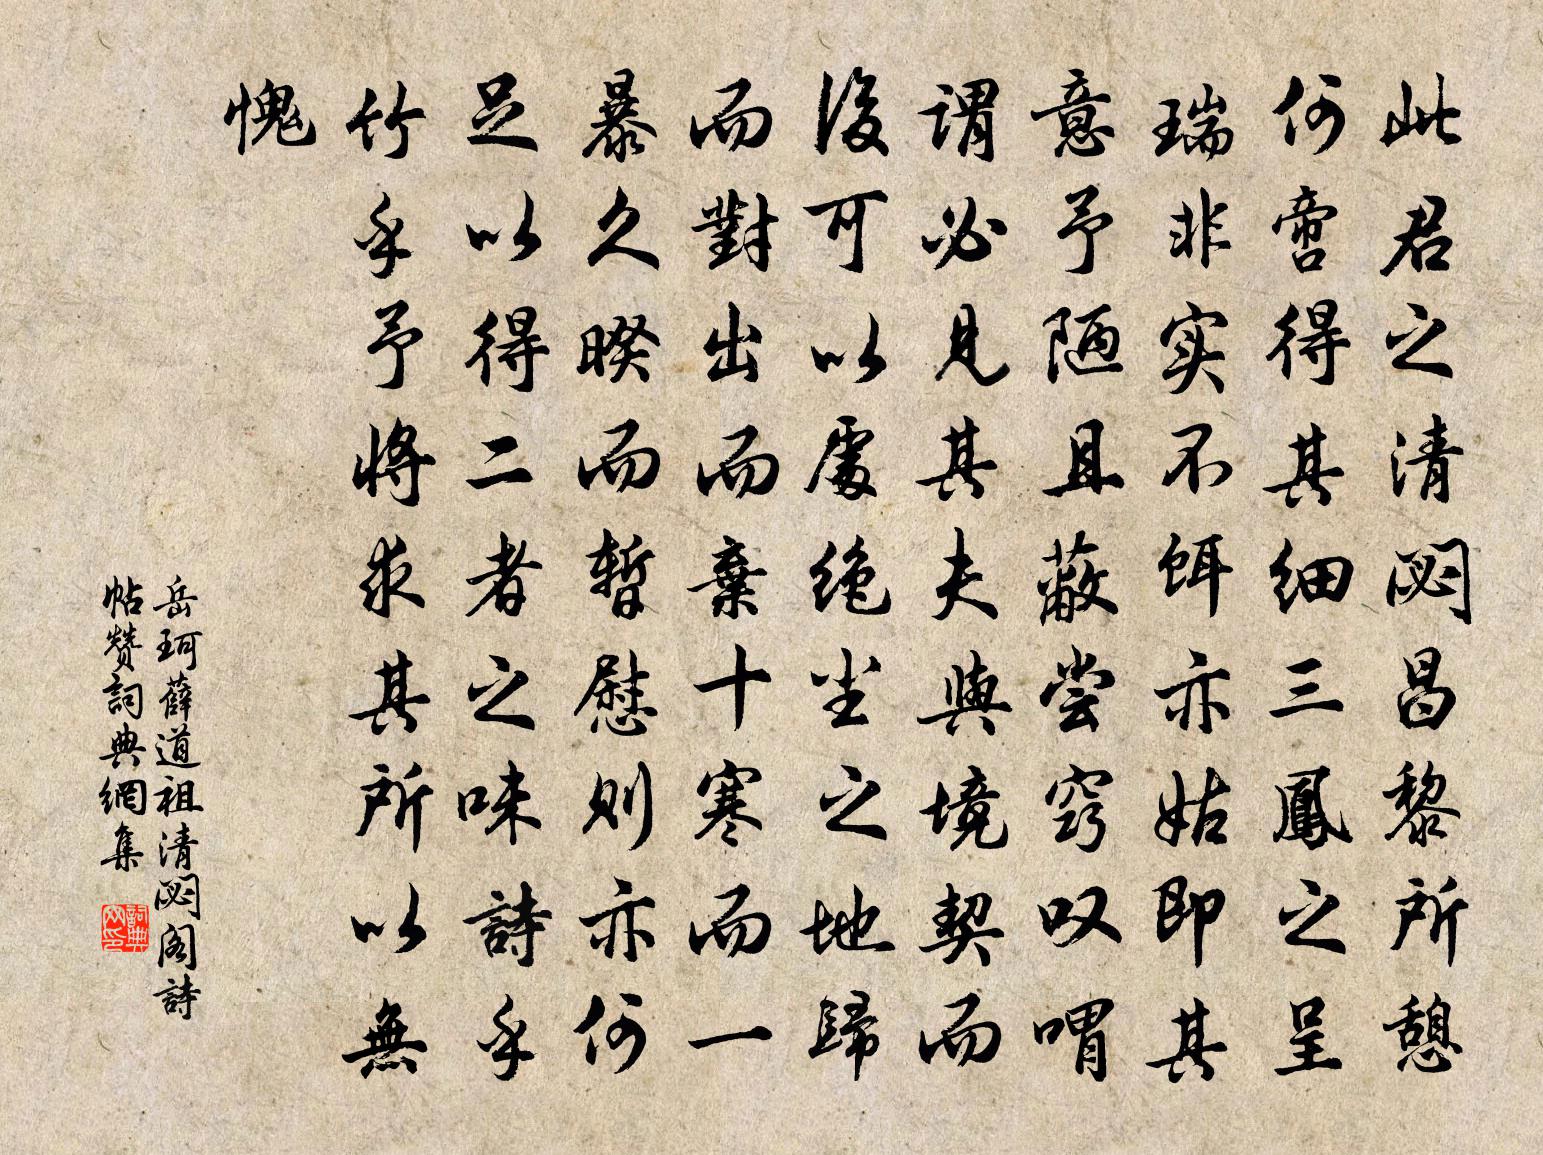 此君之清閟昌黎所憩
何啻得其细三鳳之呈
瑞非实不饵亦姑即其
意予陋且蔽尝窍叹喟
谓必見其夫與境契而
後可以處绝尘之地歸
而對出而棄十寒而一
暴久暌而暂慰则亦何
足以得二者之味詩乎
竹乎予将求其所以無
愧
岳珂薛道祖清閟阁詩
帖赞詞典網集
詞典网印